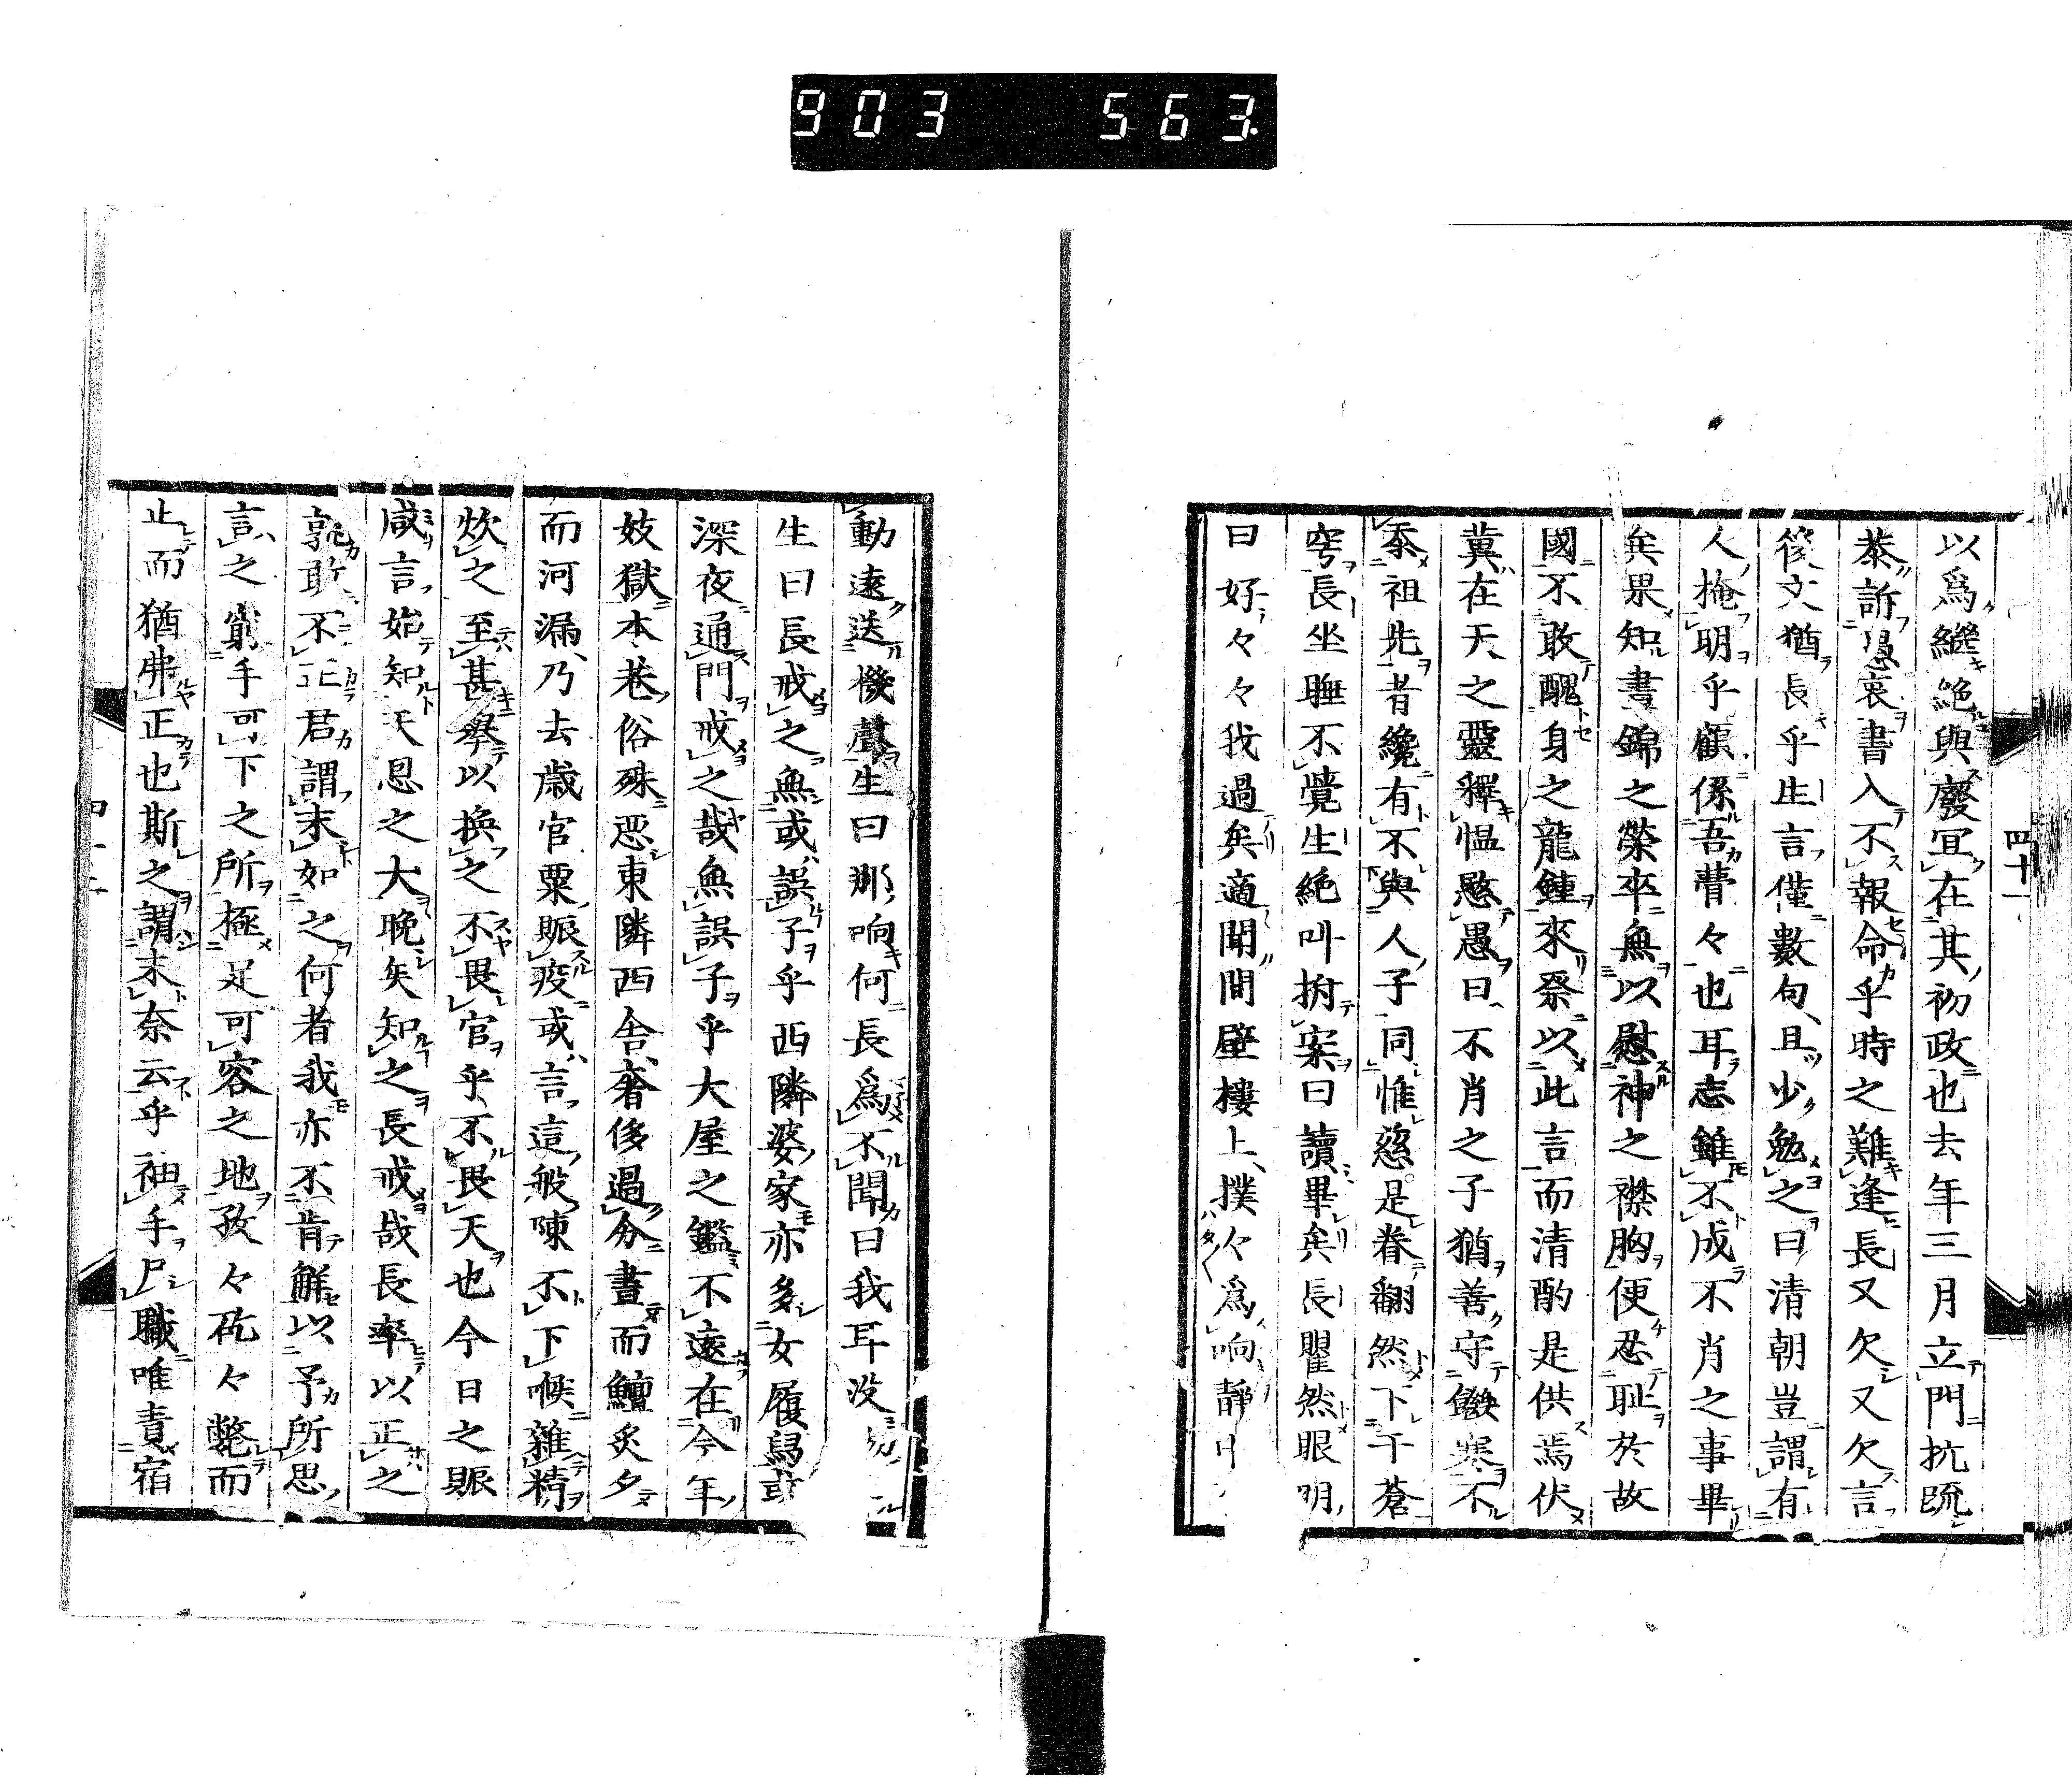 903 563.
四十一
以爲繼絶與廢冝在其初政也去年三月立門抗疏
恭訢哀書入不報命乎時之難逢長又欠又欠言
文猶長乎生言僅數句且少勉之曰清朝豈謂有
人掩明乎顧係吾瞢々也耳志雖不成不肖之事畢
矣果知晝錦之榮卒無以慰神之襟胸便忍耻於故
國不敢醜身之龍鍾來祭以此言而清酌是供焉伏
冀在天之靈釋愠愍愚曰不肖之子猶善守饑寒不
忝祖先者纔有不與人子同惟慈是眷翻然下于蒼
穹長坐睡不覺生絶叫拊案曰讀畢矣長瞿然眼明
曰好々々我過矣適聞間壁樓上撲々爲响靜中
動遠迭機聲生曰那响何長爲不聞曰我耳没
生曰長戒之無或誤子乎西隣婆家亦多女履舄或
深夜通門戒之哉無誤子乎大屋之鑑不遠在今年
妓獄本巷俗殊惡東隣西舎奢侈過分晝而鱣炙夕
而河漏乃去歳官粟賑疫或言這般陳不下喉雜精
炊之至甚擧以換之不畏官乎不畏天也今日之賑
咸言始知天恩之大晩矣知之長戒哉長率以正之
孰敢不正君謂末如之何者我亦不肯解以予所思
言之窮手可下之所極足可容之地孜々矻々斃而
止而猶弗正也斯之謂末奈云乎袖手尸職唯責宿